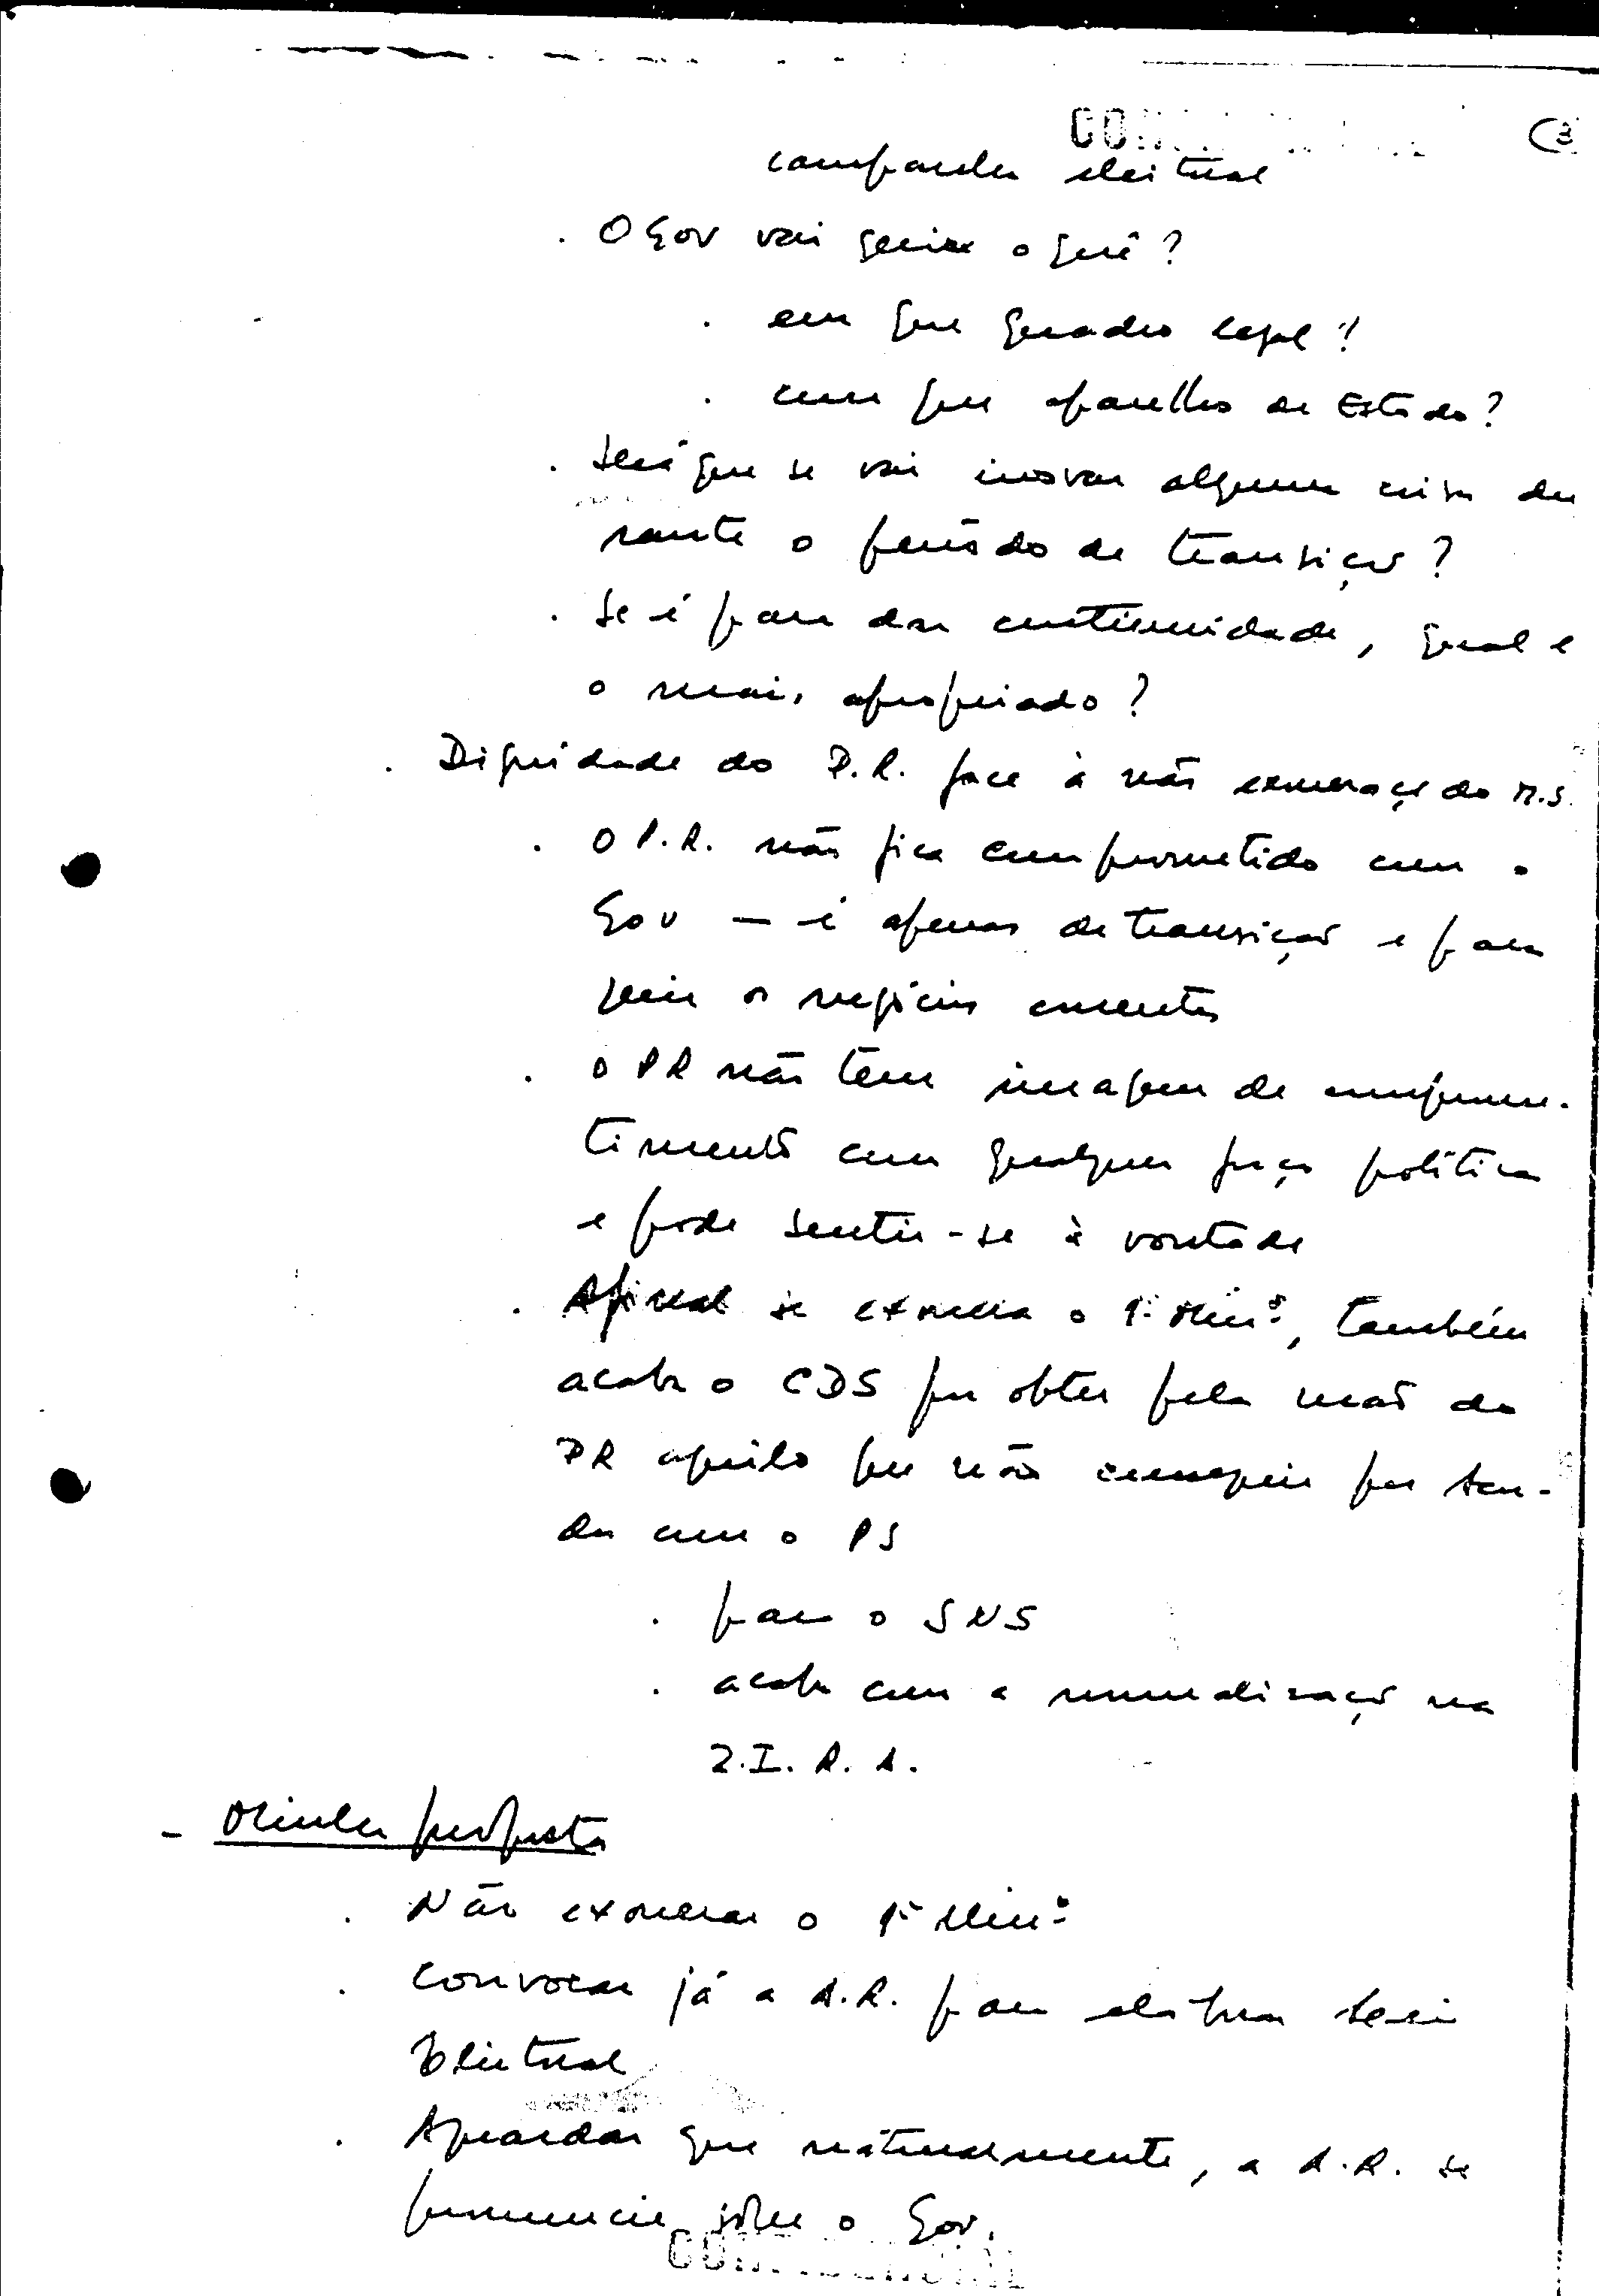 3
campanha eleitoral
. O Gov vai gerir o quê?
. em que quadro legal?
. com que aparelho de Estado?
. Será que se vai inovar alguma coisa du
rante o período de transição?
. Se é para dar continuidade, qual é
o mais apropriado?
. Dignidade do P.R. face à não exoneração do M.S.
. O P.R. não fica comprometido com o
Gov — é apenas de transição e para
gerir os negócios correntes
. O PR não tem imagem de comprome-
timento com qualquer força política
e pode sentir-se à vontade
. Afinal se exonera o 1º Minº, também
acaba o CDS por obter pela mão do
PR aquilo que não conseguiu por
com o PS
. para o SNS
. acaba com a normalização na
Z.I.R.A.
- Minha proposta
. Não exonerar o 1º Minº
. Convocar já a A.R. para elaborar Lei
Eleitoral
. Aguardar que naturalmente, a A.R. se
pronuncie sobre o Gov.